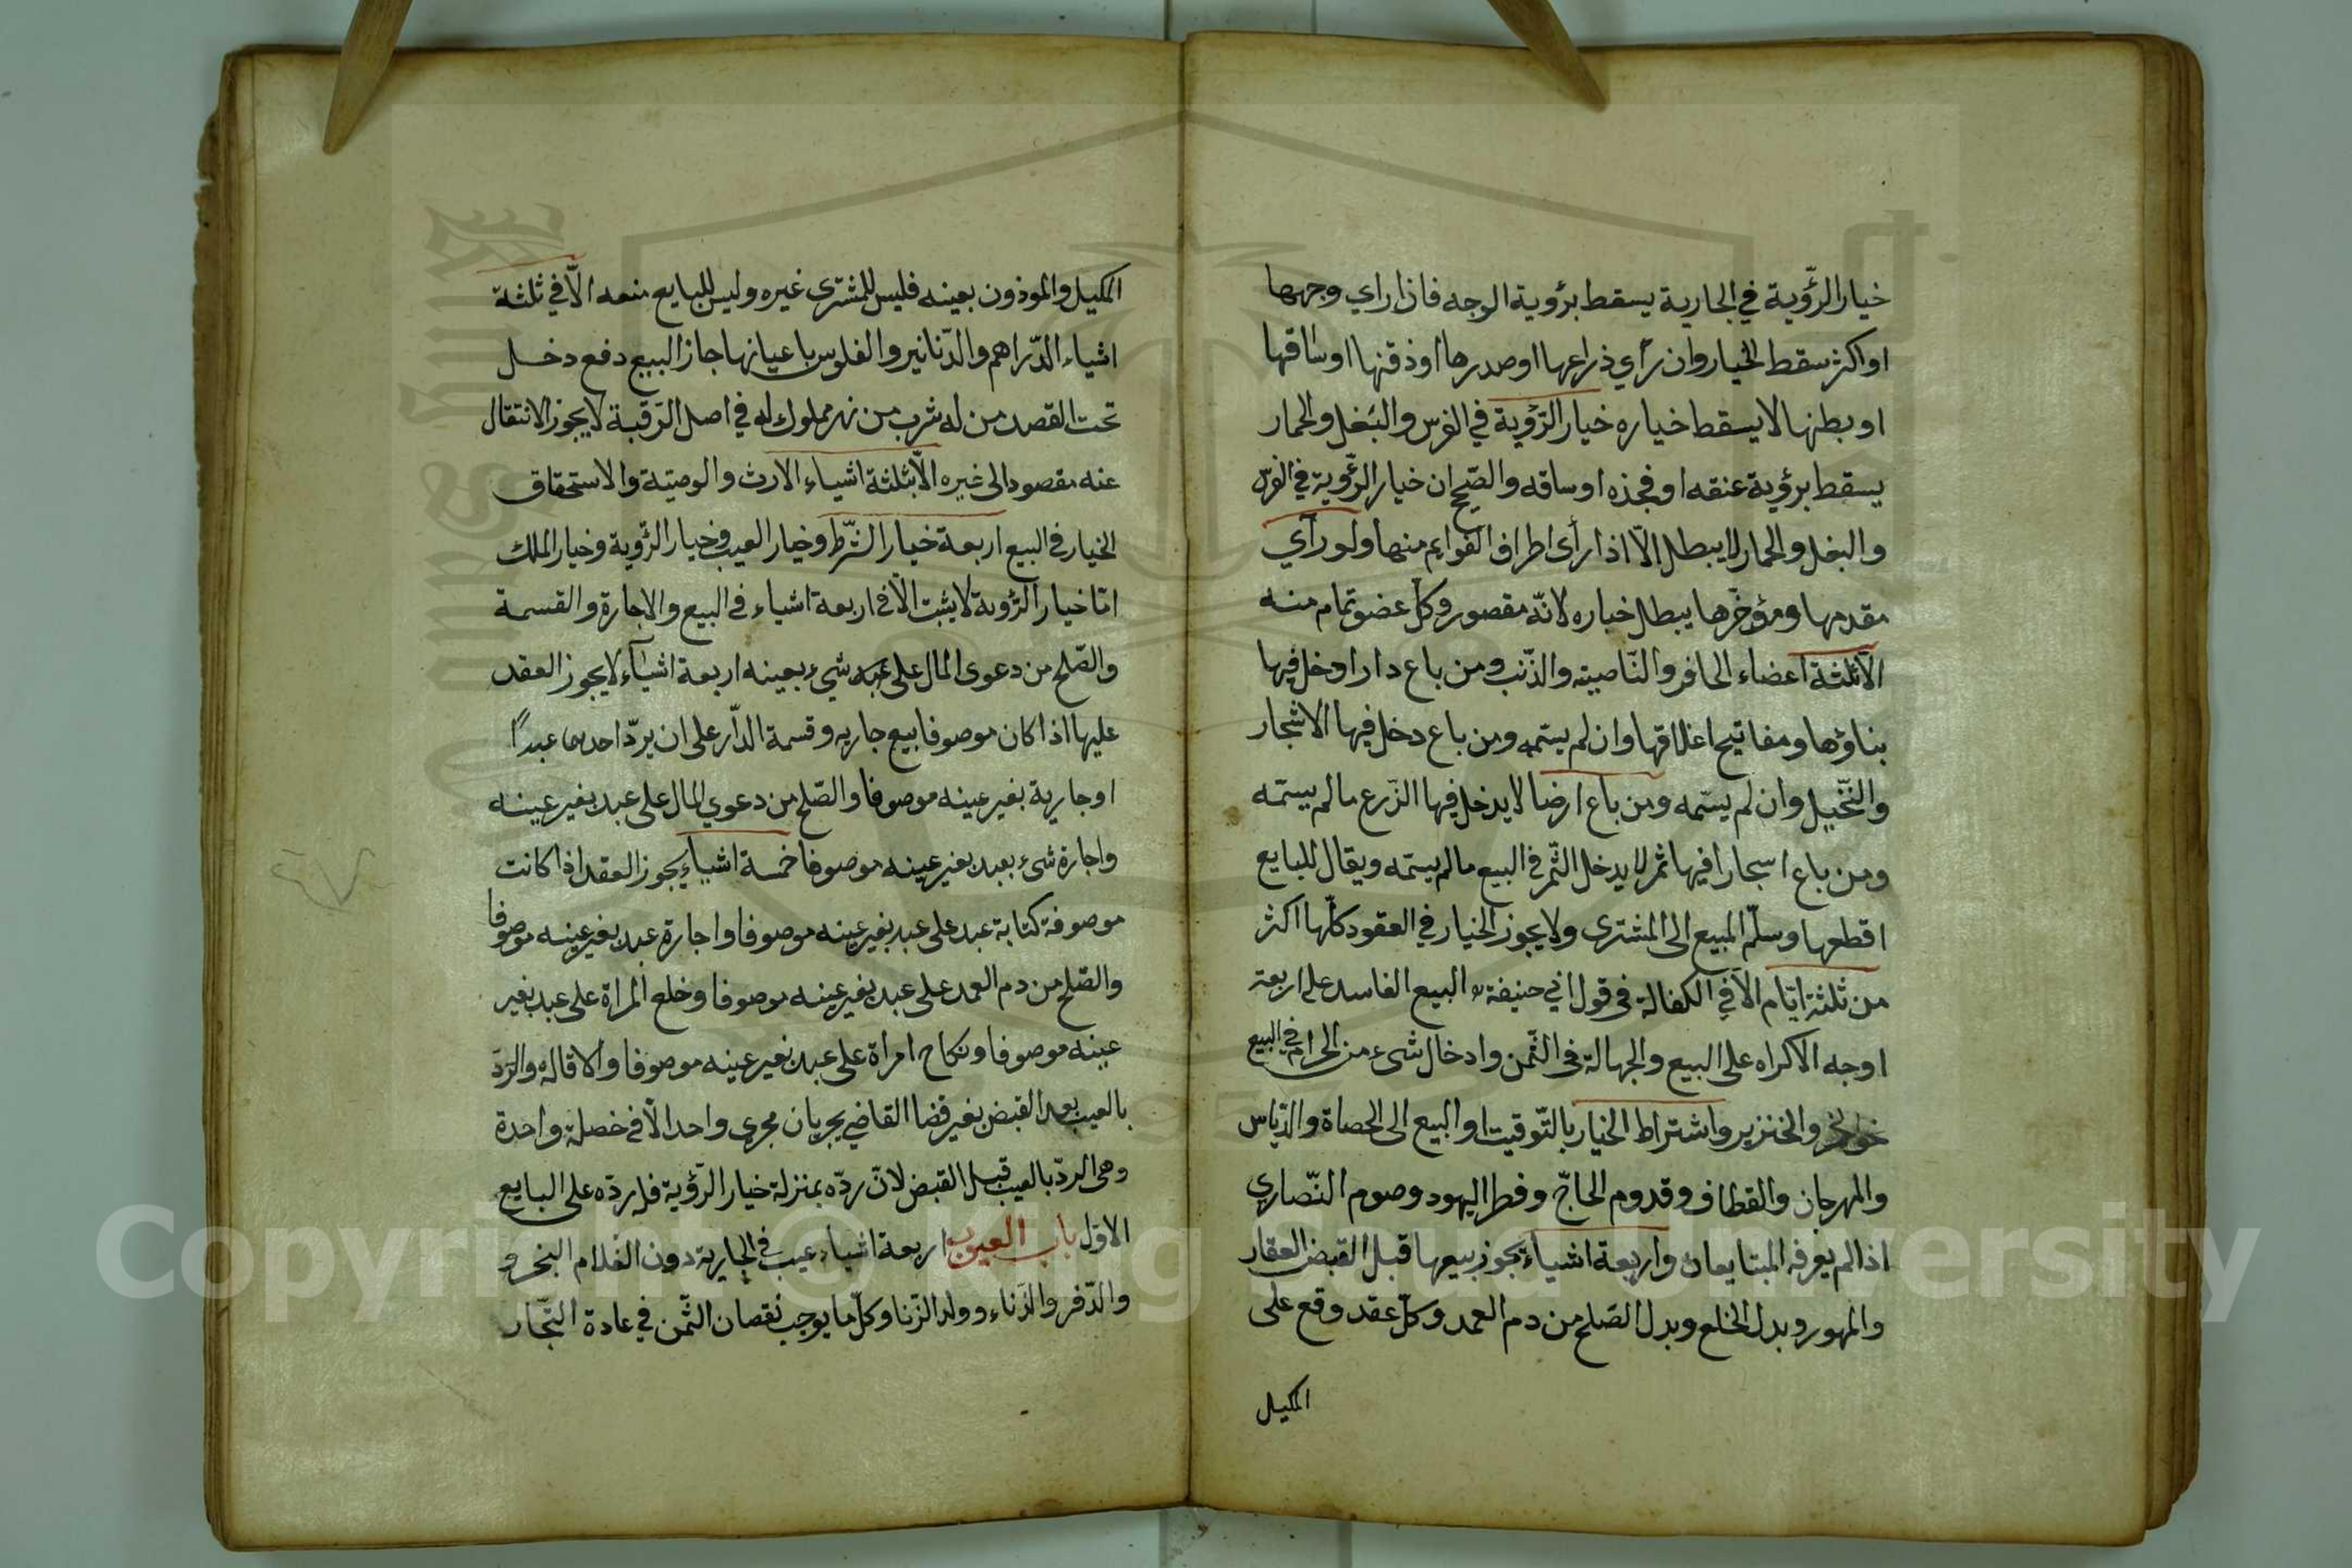 خيار الرّؤية في الجارية يسقط برؤية الوجه فاذا راي وجهها
او اكثر سقط الخيار وان رأي ذراعها او صدرها او ذقنها او ساقها
او بطنها لا يسقط خياره خيار الرّؤية في الفرس والبَغل والحمار
يسقط برؤية عنقه او فخذه او ساقه والصّحيح ان خيار الرّؤية في الفرس
والبغل والحمار لا يبطل الّا اذا رأى اطراف القوايم منها ولو رآي
مقدمها ومؤخّرها يبطل خياره لانّه مقصور وكلّ عضو تمام منه
الّا ثلثة اعضاء الحافر والنّاصية والذّنب ومن باع دارا دخل فيها
بناؤها ومفاتيح اغلاقها وان لم يسّمه ومن باع دخل فيها الاشجار
والنّخيل وان لم يسّمه ومن باع ارضا لا يدخل فيها الزّرع ما لم يسّمه
ومن باع اسجارا فيها ثمر لا يدخل الثّمر في البيع ما لم يسّمه ويقال للبايع
اقطعها وسلّم المبيع الى المشترى ولا يجوز الخيار في العقود كلّها اكثر
من ثلثة ايّام الّا في الكفالة فى قول ابي حنيفة البيع الفاسد على اربعة
اوجه الاكراه على البيع والجهالة فى الثّمن وادخال شىء من الحرام في البيع
نحو الخمر والخنزير واشتراط الخيار بالتّوقيت او البيع الى الحصاة والدّياس
والمهرجان والقطاف وقدوم الحاجّ وفطر اليهود وصوم النّصاري
اذا لم يعرفه المبتايعان واربعة اشياء يجوز بيعها قبل القبض العقار
والمهور وبدل الخلع وبدل الصّلح من دم العمد وكلّ عقد وقع على
المكيل
المكيل والموذون بعينه فليس للمشترى غيره وليس للبايع منعه الّا في ثلثة
اشياء الدّراهم والدّنانير والفلوس باعيانها جاز البيع دفع دخل
تحت القصد من له شرب من نهر مملوك له في اصل الرّقبة لا يجوز الانتقال
عنه مقصودا الى غيره الّا بثلثة اشياء الارث والوصيّة والاستحقاق
الخيار فى البيع اربعة خيار الشّرط وخيار العيب وخيار الرّؤية وخيار الملك
امّا خيار الرّؤية لا يثبت الّا في اربعة اشياء فى البيع والاجارة والقسمة
والصّلح من دعوى المال على شيء بعينه اربعة اشياء لا يجوز العقد
عليها اذا كان موصوفا بيع جاريه وقسمة الدّار على ان يردّ احدهما عبدًا
او جارية بغير عينه موصوفا والصّلح من دعوي المال على عبد بغير عينه
واجارة شىء بعبد بغير عينه موصوفا خمسة اشياء يجوز العقد اذا كانت
موصوفة كتابة عبد على عبد بغير عينه موصوفا واجارة عبد بغير عينه موصوفا
والصّلح من دم العمد على عبد بغير عينه موصوفا وخلع المراة على عبد بغير
عينه موصوفا ونكاح امراة على عبد بغير عينه موصوفا والاقالة والردّ
بالعيب بعد القبض بغير قضا القاضي يجريان مجري واحدا الّا في خصلة واحدة
وهى الردّ بالعيب قبل القبض لانّ ردّه بمنزلة خيار الرّؤية فله ردّه على البايع
الاوّل باب العيوب اربعة اشياء عيب في الجارية دون الغلام البخر و
والدّفر والزّناء وولد الزّنا وكلّ ما يوجب نقصان الثّمن في عادة التّجار
Copyright © King Saud University